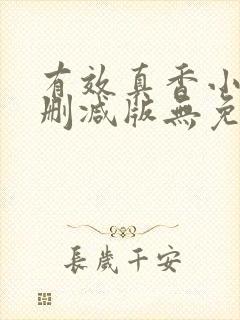 有效真香小
删减版無免
長歲千安